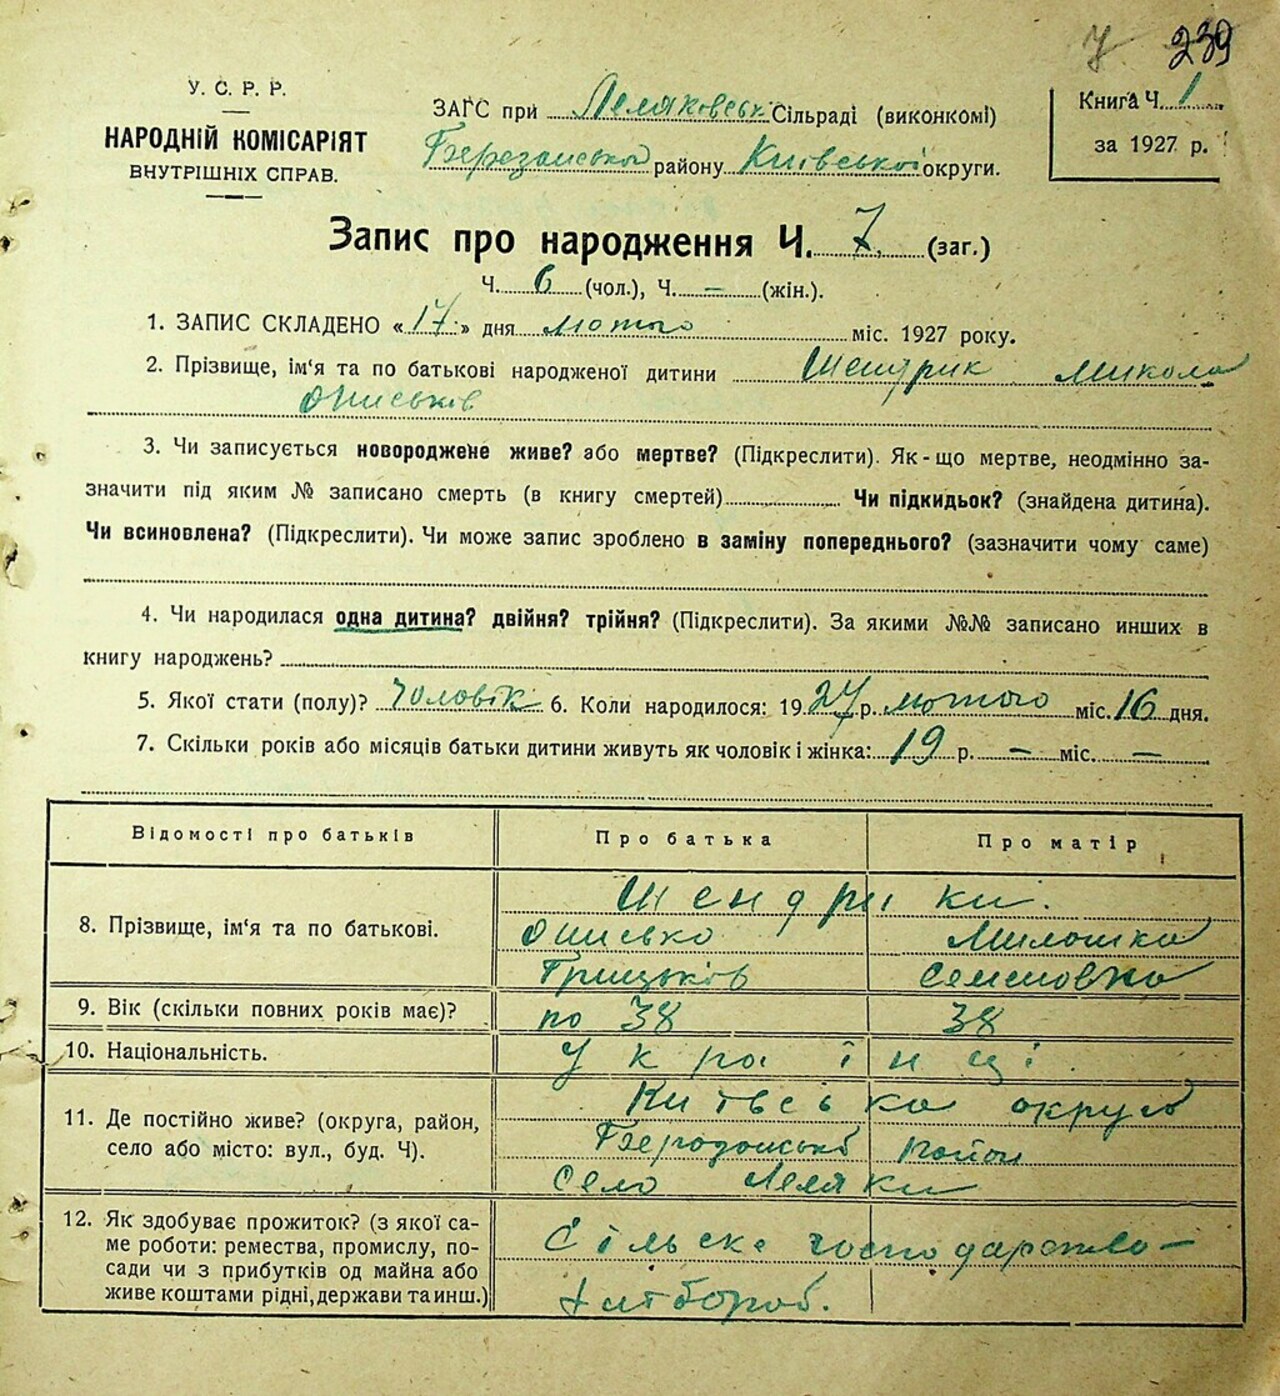 7 239
У. С. Р. Р.
НАРОДНІЙ КОМІСАРІЯТ
ВНУТРІШНІХ СПРАВ.
ЗАГС при Леляковськ Сільраді (виконкомі)
Березанської району Київської округи.
Книга Ч. 1
за 1927 р.
Запис про народження Ч. 7 (заг.)
Ч. 6 (чол.), Ч. — (жін.).
1. ЗАПИС СКЛАДЕНО «17» дня лютого міс. 1927 року.
2. Прізвище, ім'я та по батькові народженої дитини Шендрик Микола
Ониськів
3. Чи записується новороджене живе? або мертве? (Підкреслити). Як-що мертве, неодмінно за-
значити під яким № записано смерть (в книгу смертей) Чи підкидьок? (знайдена дитина).
Чи всиновлена? (Підкреслити). Чи може запис зроблено в заміну попереднього? (зазначити чому саме)
4. Чи народилася одна дитина? двійня? трійня? (Підкреслити). За якими №№ записано инших в
книгу народжень?
5. Якої стати (полу)? чоловік 6. Коли народилося: 1927 р. лютого міс. 16 дня.
7. Скільки років або місяців батьки дитини живуть як чоловік і жінка: 19 р. — міс. —
Відомості про батьків Про батька Про матір
8. Прізвище, ім'я та по батькові. Шендрики.
Онисько Милашка
Грицьків Семеновна
9. Вік (скільки повних років має)? по 38 38
10. Національність. Українці
11. Де постійно живе? (округа, район,
село або місто: вул., буд. Ч).
Київська округа
район
Село Леляки
12. Як здобуває прожиток? (з якої са-
ме роботи: ремества, промислу, по-
сади чи з прибутків од майна або
живе коштами рідні, держави та инш.)
Сільске господарство —
хлібороб.